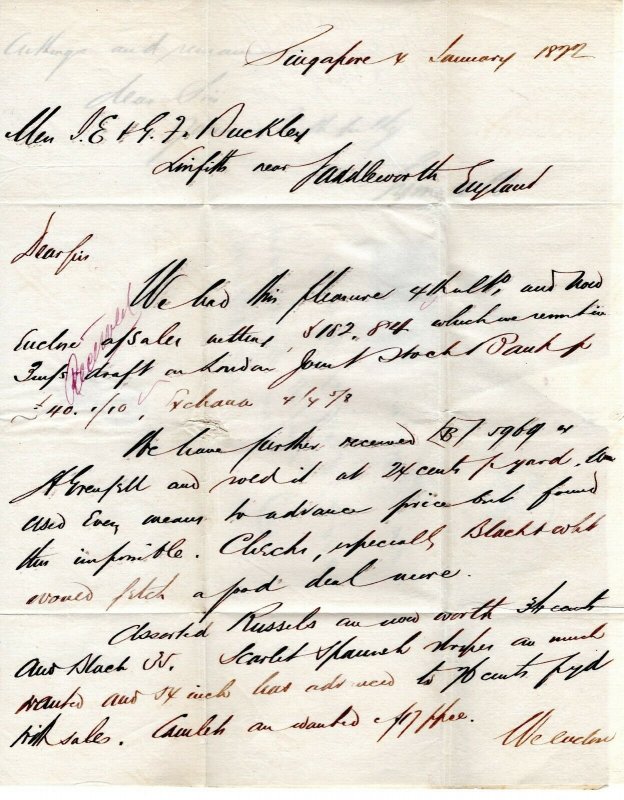 Singapore 4 January 1872
Mess J. E & G. F. Buckley
Linfitts near Saddleworth England
Dear Sirs
We had this pleasure 4th ulto, and now
enclose a/sales netting $182.84 which we remit in
draft on London Joint Stock Bank for
£40.1/10, Exchange 4/4 5/8
Received
We have further received [B] 5969
Grenfell and sold it at 24 cents p yard. We
used every means to advance price but found
this impossible. Checks, especially Black & white
would fetch a good deal more.
Assorted Russels are now worth 34 cents
and Black 35. Scarlet Spanish stripes are much
wanted and 54 inch has advanced to 76 cents p yd
with sales. Camlets are wanted $17 p pce.
We enclose
cuttings and remain
dear Sirs